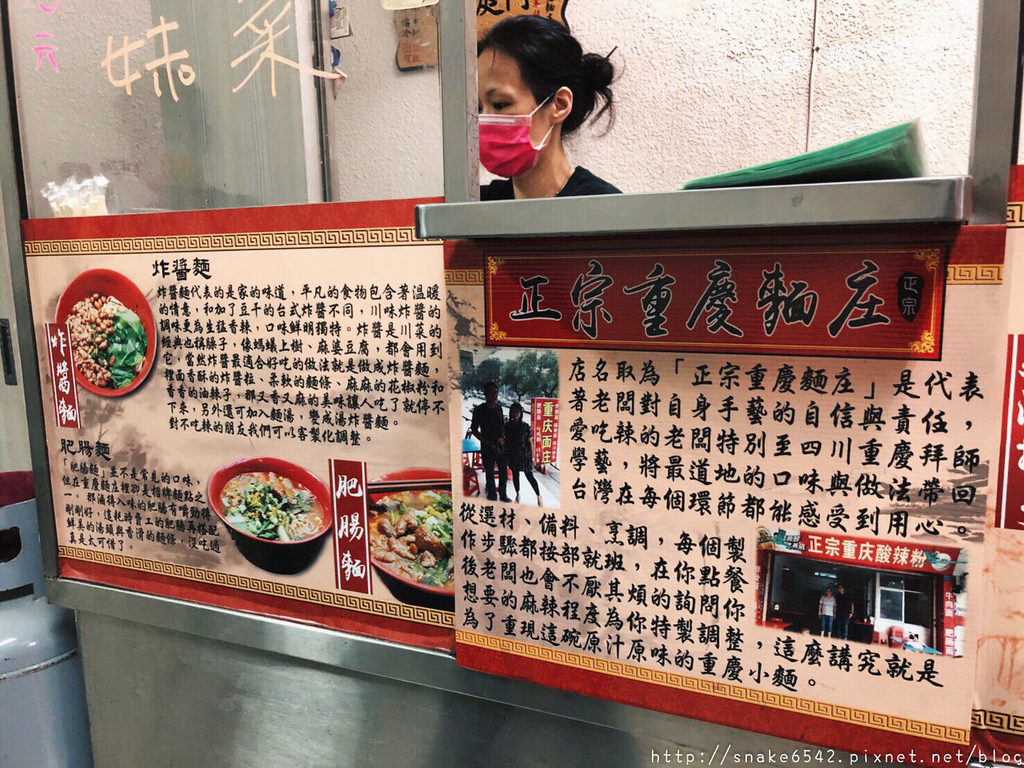 元
妹
菜
炸醬麵
炸醬麵代表的是家的味道，平凡的食物包含著溫暖
的情意，和加了豆干的台式炸醬不同，川味炸醬的
調味更為重鹹香辣，口味鮮明獨特。炸醬是川菜的
經典也稱臊子，像螞蟻上樹、麻婆豆腐，都會用到
它，當然炸醬最適合好吃的做法就是做成炸醬麵，
裡面香酥的炸醬粒、柔軟的麵條、麻麻的花椒粉和
香香的油辣子，那又香又麻的美味讓人吃了就停不
下來，另外還可加入麵湯，變成湯炸醬麵。
對不吃辣的朋友我們可以客製化調整。
炸醬麵
肥腸麵
「肥腸麵」並不是常見的口味，
但在重慶麵庄裡卻是招牌麵點之
一。那滷得入味的肥腸有嚼勁得
剛剛好，這耗時費工的肥腸再搭配
鮮美的湯頭與香滑的麵條，沒吃過
真是太可惜了。
肥腸麵
正宗重慶麵庄
正宗
店名取為「正宗重慶麵庄」是代表
著老闆對自身手藝的自信與責任，
愛吃辣的老闆特別至四川重慶拜師
學藝，將最道地的口味與做法帶回
台灣在每個環節都能感受到用心。
重庆面庄
從選材、備料、烹調，每個製
作步驟都按部就班，在你點餐
後老闆也會不厭其煩的詢問你
想要的麻辣程度為你特製調整，這麼講究就是
為了重現這碗原汁原味的重慶小麵。
正宗重庆酸辣粉
牛肉面
http://snake6542.pixnet.net/blog